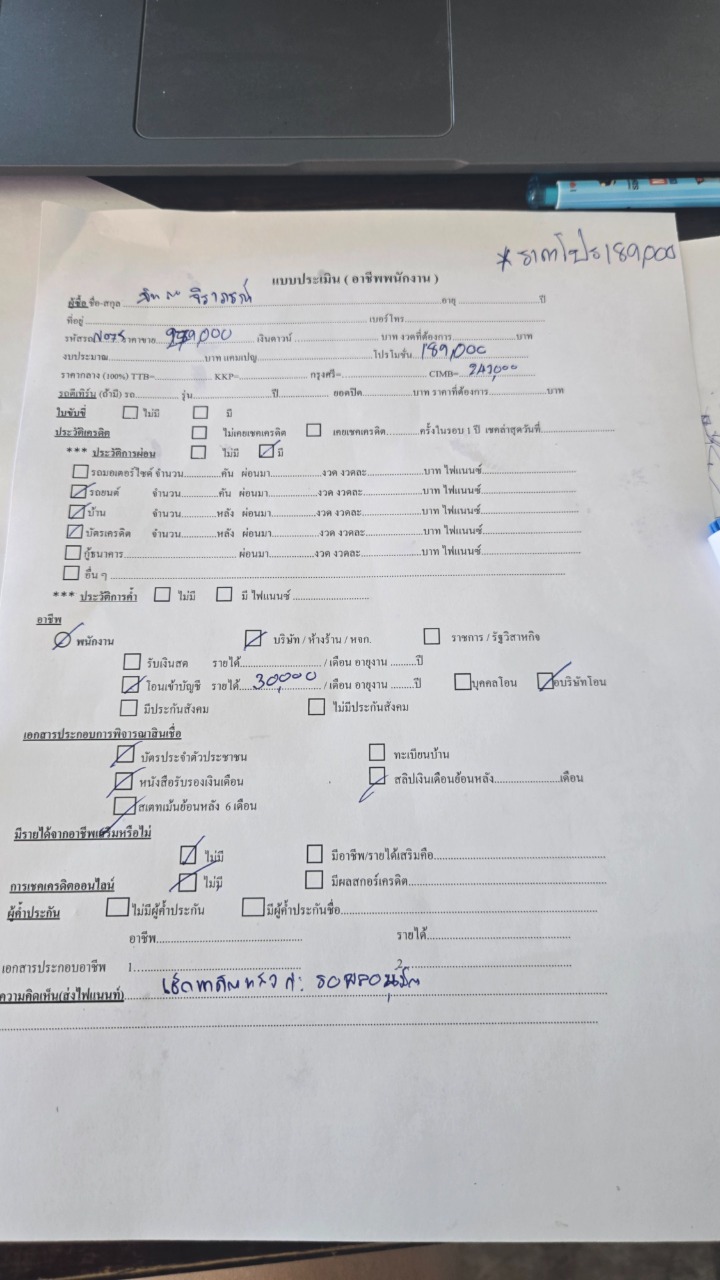 * ราคาโปร 189,000
แบบประเมิน ( อาชีพพนักงาน )
ผู้ซื้อ ชื่อ-สกุล จิราภรณ์ อายุ ปี
ที่อยู่ เบอร์โทร
รหัสรถ N075 ราคาขาย เงินดาวน์ บาท งวดที่ต้องการ บาท
งบประมาณ บาท แคมเปญ โปรโมชั่น 189,000
ราคากลาง (100%) TTB= KKP= กรุงศรี= CIMB=
รถตีเทิร์น (ถ้ามี) รถ รุ่น ปี ยอดปิด บาท ราคาที่ต้องการ บาท
ใบขับขี่ ไม่มี มี
ประวัติเครดิต ไม่เคยเชคเครดิต เคยเชคเครดิต ครั้งในรอบ 1 ปี เชคล่าสุดวันที่
*** ประวัติการผ่อน ไม่มี มี
รถมอเตอร์ไซค์ จำนวน คัน ผ่อนมา งวด งวดละ บาท ไฟแนนซ์
รถยนต์ จำนวน คัน ผ่อนมา งวด งวดละ บาท ไฟแนนซ์
บ้าน จำนวน หลัง ผ่อนมา งวด งวดละ บาท ไฟแนนซ์
บัตรเครดิต จำนวน หลัง ผ่อนมา งวด งวดละ บาท ไฟแนนซ์
กู้ธนาคาร ผ่อนมา งวด งวดละ บาท ไฟแนนซ์
อื่น ๆ
*** ประวัติการค้ำ ไม่มี มี ไฟแนนซ์
อาชีพ
พนักงาน บริษัท / ห้างร้าน / หจก. ราชการ / รัฐวิสาหกิจ
รับเงินสด รายได้ / เดือน อายุงาน ปี
โอนเข้าบัญชี รายได้ 30,000 / เดือน อายุงาน ปี บุคคลโอน บริษัทโอน
มีประกันสังคม ไม่มีประกันสังคม
เอกสารประกอบการพิจารณาสินเชื่อ
บัตรประจำตัวประชาชน ทะเบียนบ้าน
หนังสือรับรองเงินเดือน สลิปเงินเดือนย้อนหลัง เดือน
สเตทเม้นย้อนหลัง 6 เดือน
มีรายได้จากอาชีพเสริมหรือไม่
ไม่มี มีอาชีพ/รายได้เสริมคือ
การเชคเครดิตออนไลน์ ไม่มี มีผลสกอร์เครดิต
ผู้ค้ำประกัน ไม่มีผู้ค้ำประกัน มีผู้ค้ำประกันชื่อ
อาชีพ รายได้
เอกสารประกอบอาชีพ 1 2
ความคิดเห็น(ส่งไฟแนนท์)